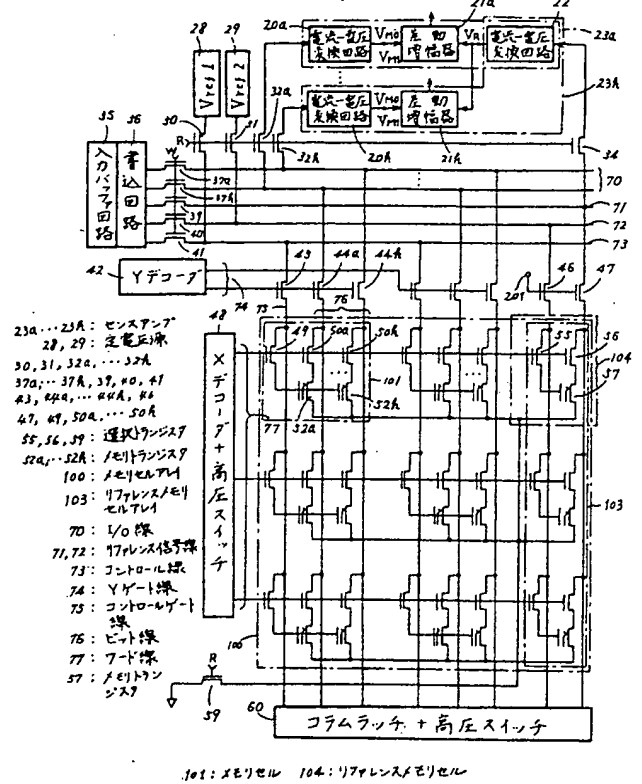 20a
21a
22
28
29
電流-電圧
変換回路
VM0
VM1
差動
増幅器
VR
電流-電圧
変換回路
23a
Vref 1
Vref 2
32a
23h
電流-電圧
変換回路
VM0
VM1
差動
増幅器
20h
21h
35
36
30
31
R
32h
34
入力バッファ回路
書込回路
W
37a
37h
39
40
41
70
71
72
73
42
Yデコーダ
74
43
44a
44h
46
47
201
75
76
48
49
50a
50h
55
56
57
104
101
52a
52h
77
Xデコーダ+高圧スイッチ
103
100
23a…23h: センスアンプ
28, 29: 定電圧源
30, 31, 32a, …32h
37a…37h, 39, 40, 41
43, 44a, …44h, 46
47, 49, 50a, …50h
55, 56, 59: 選択トランジスタ
52a, …52h: メモリトランジスタ
100: メモリセルアレイ
103: リファレンスメモリ
セルアレイ
70: I/O線
71, 72: リファレンス信号線
73: コントロール線
74: Yゲート線
75: コントロールゲート
線
76: ビット線
77: ワード線
57: メモリトラン
ジスタ
R
59
60
コラムラッチ+高圧スイッチ
101: メモリセル 104: リファレンスメモリセル